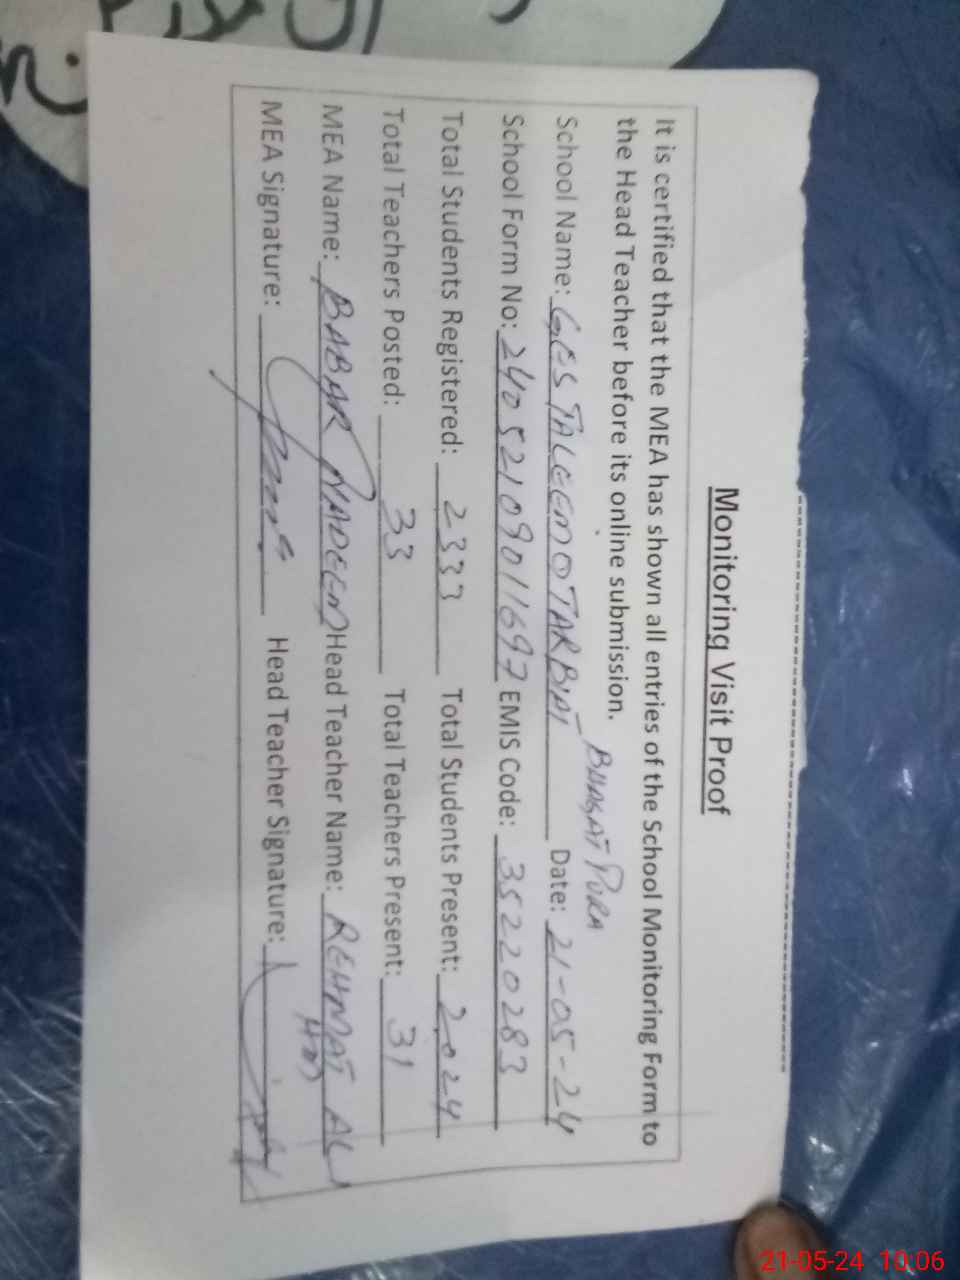 Monitoring Visit Proof
It is certified that the MEA has shown all entries of the School Monitoring Form to
the Head Teacher before its online submission.
BHAGAT PURA
School Name: GES TALEEMOTARBIAT Date: 21-05-24
School Form No: 24052109011697 EMIS Code: 35220283
Total Students Registered: 2333 Total Students Present: 2024
Total Teachers Posted: 33 Total Teachers Present: 31
MEA Name: BABAR NADEEM Head Teacher Name: REHMAT ALI
HM
MEA Signature: Head Teacher Signature:
21-05-24 10:06